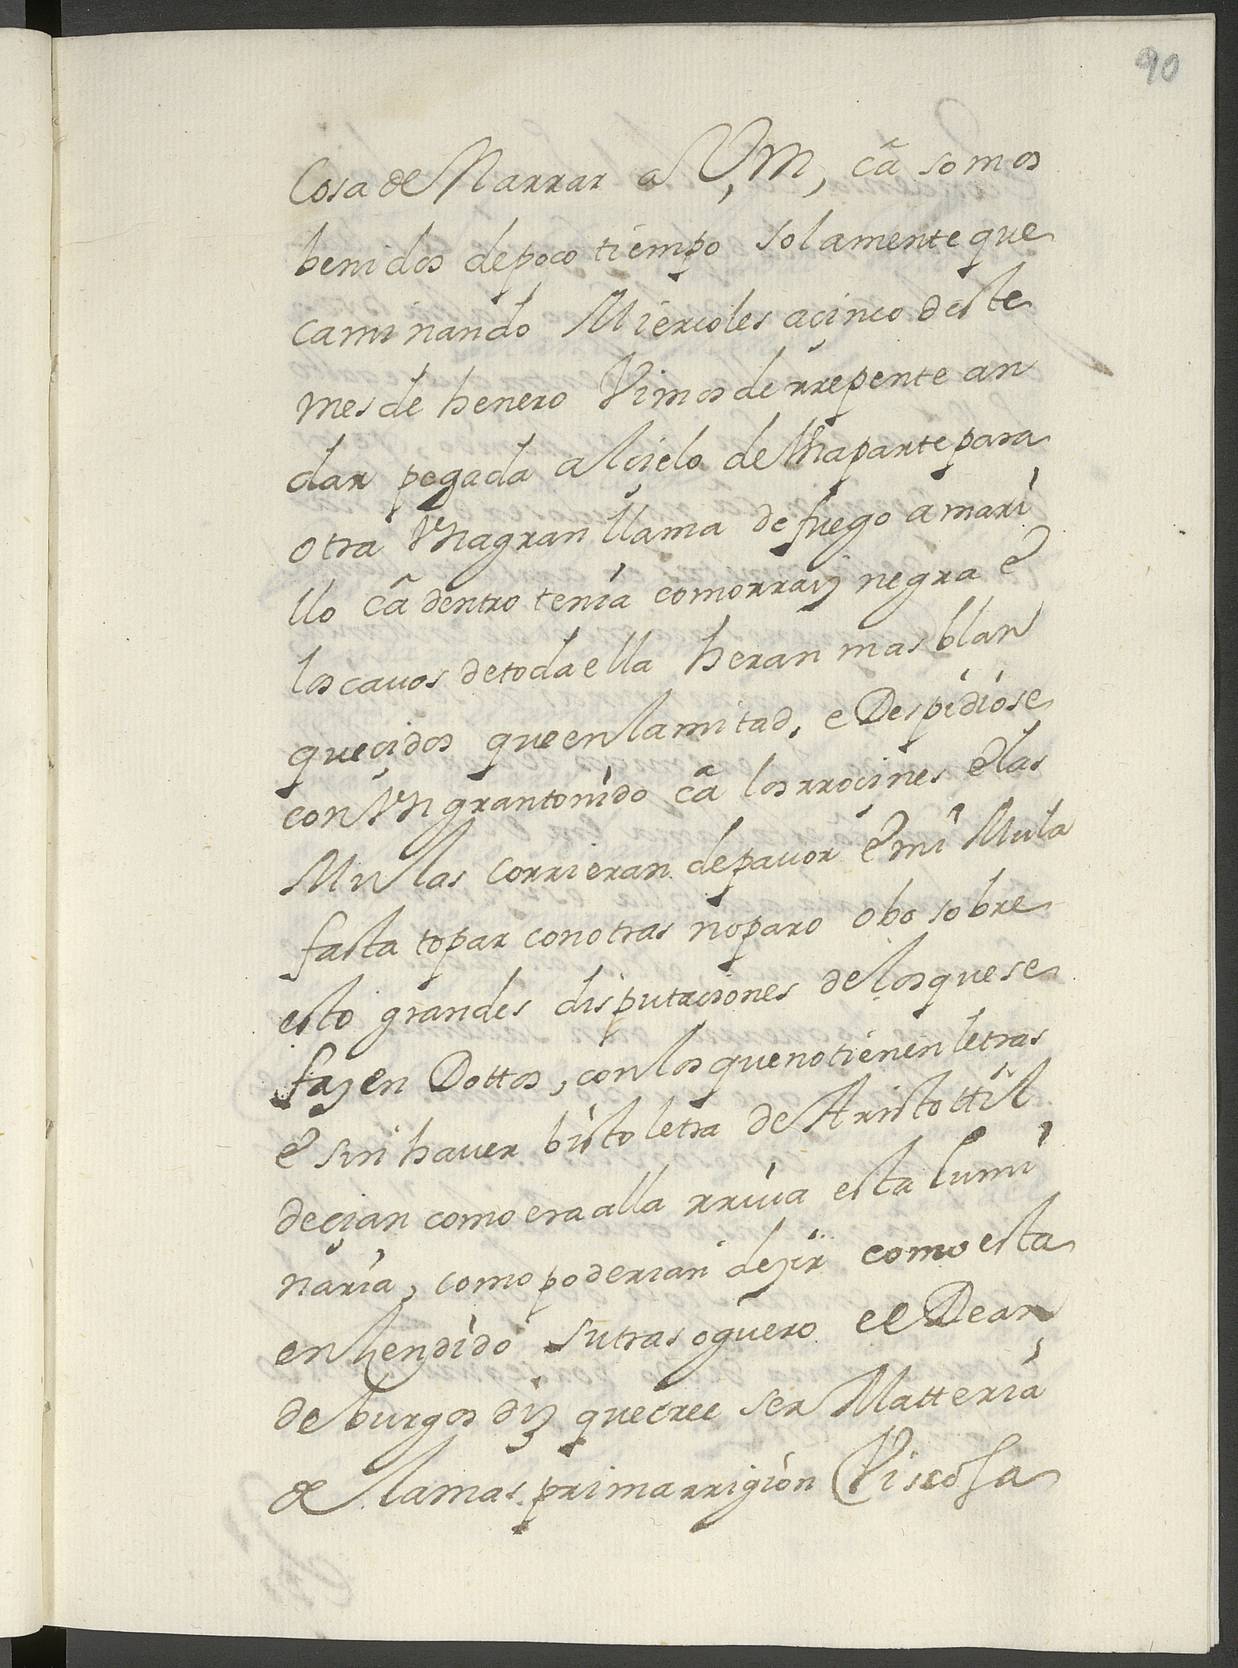 90
Cosa de Narrar a V, M, cã somos
benidos de poco tiempo solamente que
caminando Miercoles a çinco deste
mes de henero Vimos de rrepente an
dar pegada al çielo de Vna parte para
otra Vna gran llama de fuego amari
llo cã dentro tenia como rraiz negra e
los cauos de toda ella heran mas blan
queçidos que en la mitad, e Despidiose
con Vn gran tonido cã los rroçines e las
Mulas corrieran de pauor e mi Mula
fasta topar con otras no paro obo sobre
esto grandes disputaciones de los que se
fazen Dottos, con los que no tienen letras
e sin haver bisto letra de Aristottil
deçian como era alla rriva esta lumi
naria, como poderian dezir como esta
enhendido su trasoguero el Dean
de burgos diz que cree ser Matteria
de la mas prima rrigion Viscosa